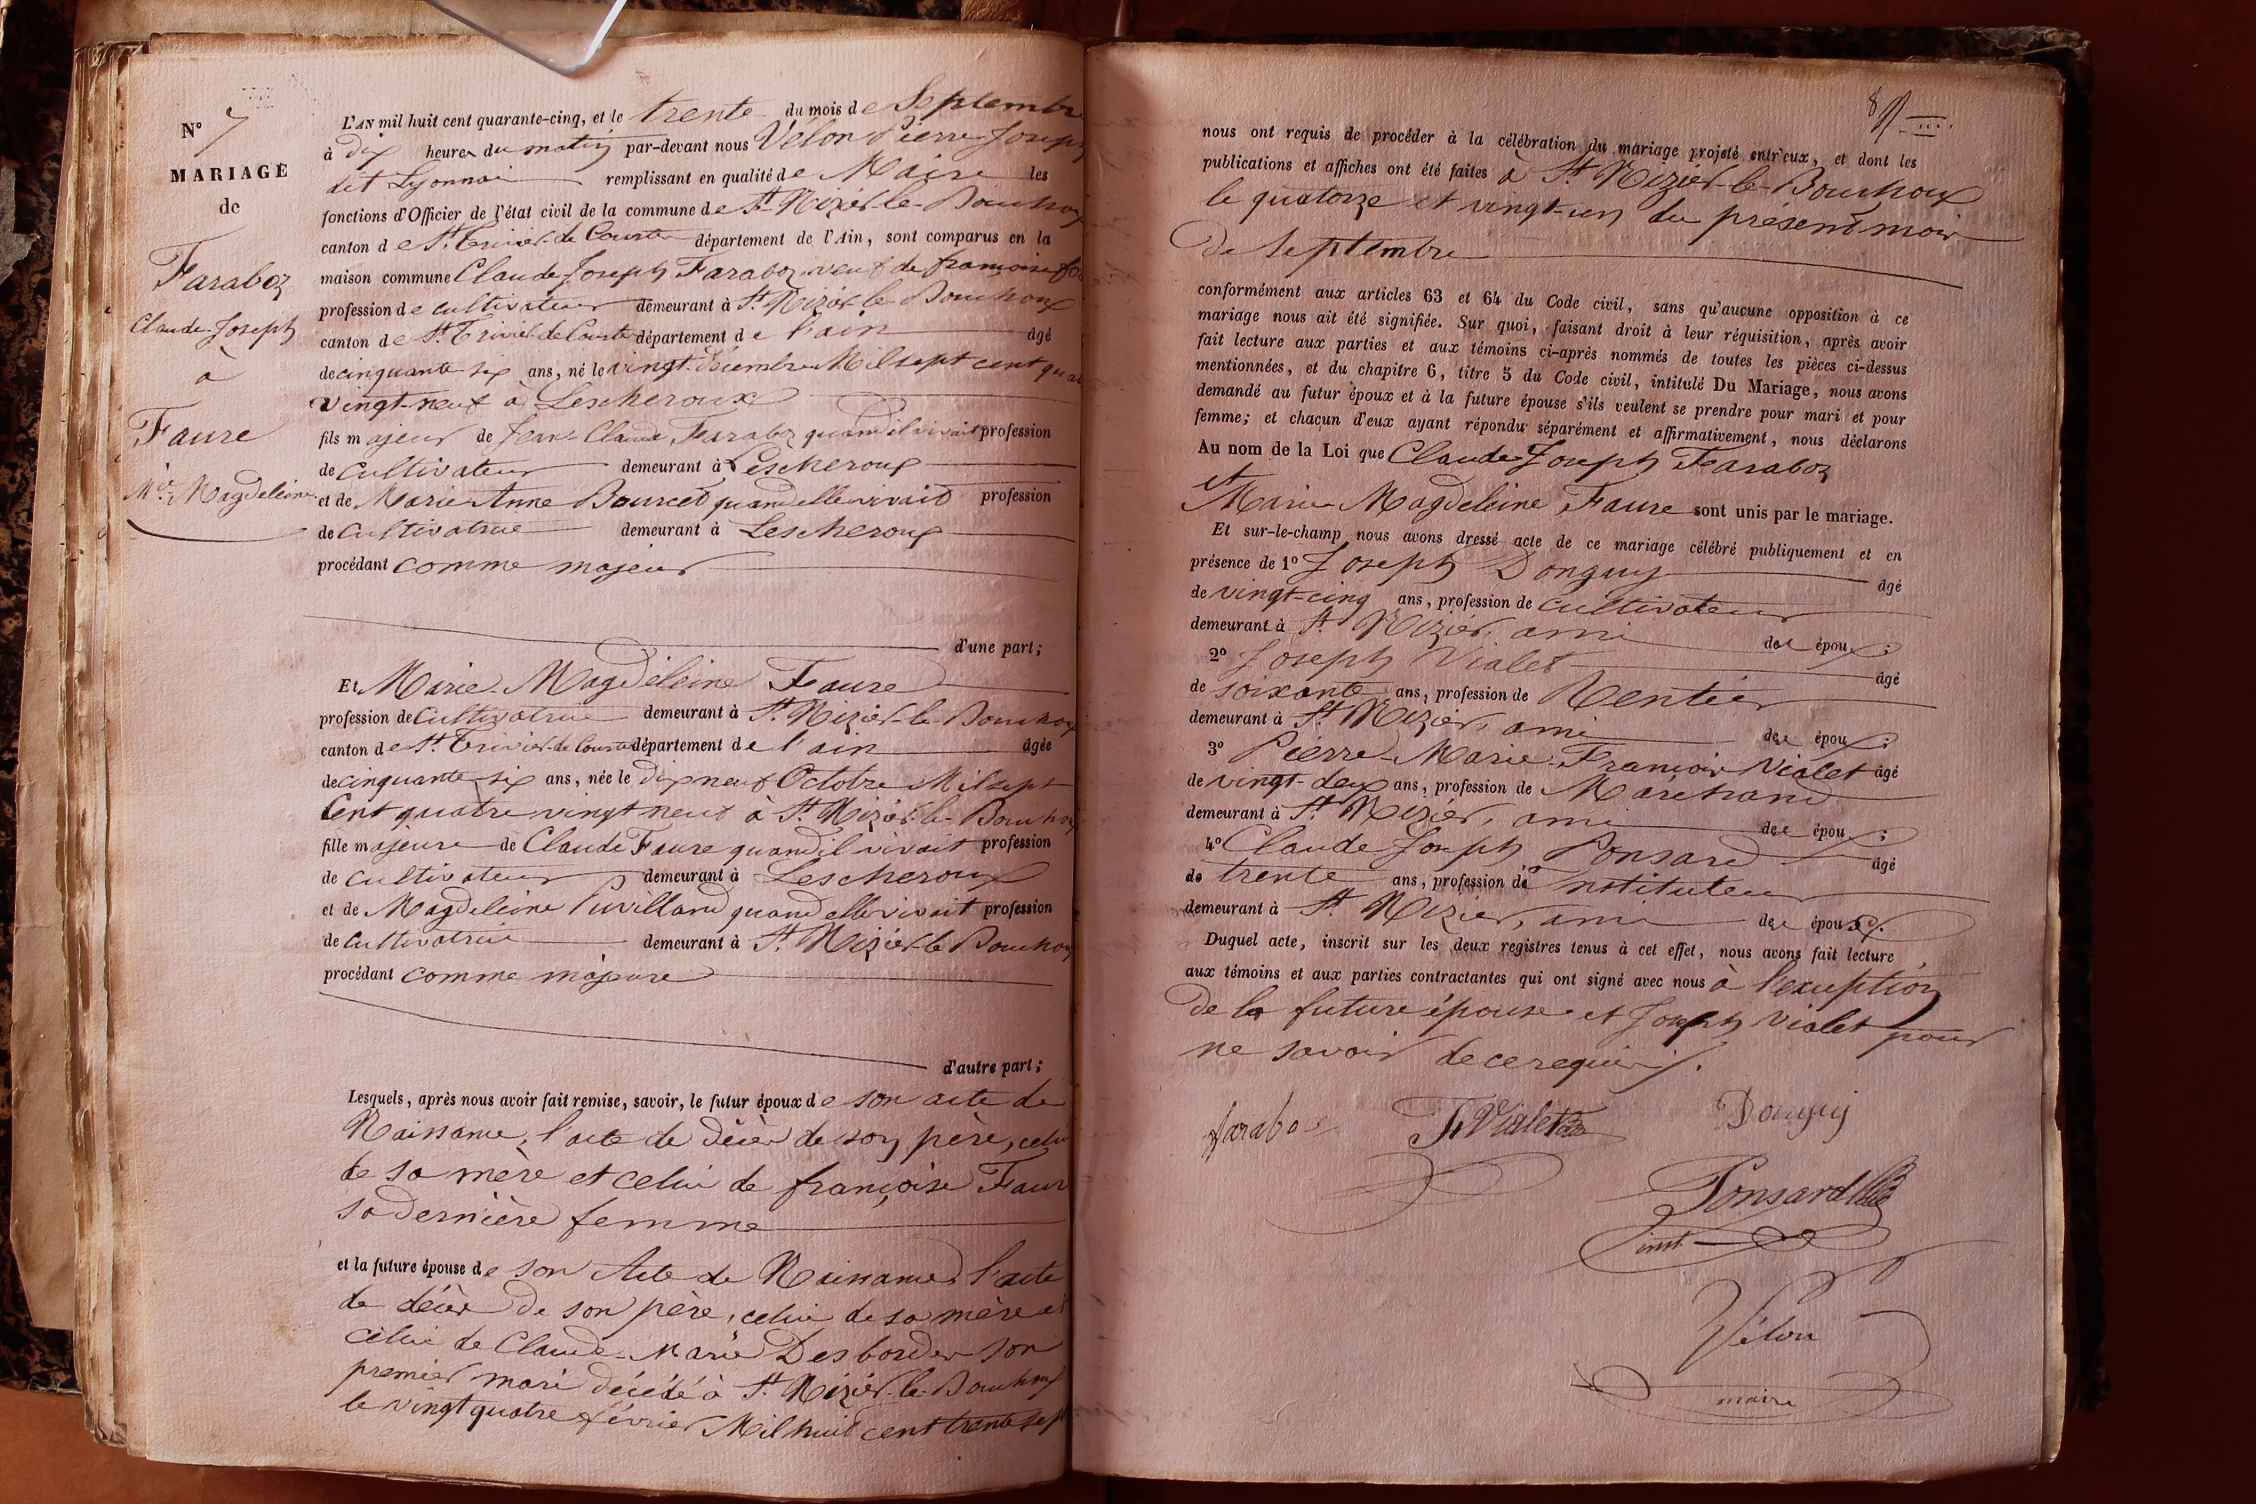 N° 7
MARIAGE
de
Faraboz
Claude-Joseph
à
Faure
Mie Magdeleine
L'AN mil huit cent quarante-cinq, et le trente du mois de Septembre
à dix heures du matin par-devant nous Vélon Pierre Joseph
dit Lyonnais remplissant en qualité de Maire les
fonctions d'Officier de l'état civil de la commune de St. Nizier-le-Bouchoux
canton de St. Trivier-de-Courtes département de l'Ain, sont comparus en la
maison commune Claude Joseph Faraboz veuf de françoise
profession de cultivateur demeurant à St. Nizier le Bouchoux
canton de St. Trivier de Courtes département de l'ain âgé
de cinquante six ans, né le vingt Décembre Mil sept cent
vingt-neuf à Lescheroux
fils majeur de Jean-Claude Faraboz quand il vivait profession
de Cultivateur demeurant à Lescheroux
et de Marie Anne Bourcet quand elle vivait profession
de Cultivatrice demeurant à Lescheroux
procédant comme majeur
d'une part;
Et Marie-Magdeleine Faure
profession de Cultivatrice demeurant à St. Nizier-le-Bouchoux
canton de St. Trivier-de-Courtes département de l'ain âgée
de cinquante six ans, née le Dix neuf Octobre Mil sept
Cent quatre vingt neuf à St. Nizier-le-Bouchoux
fille majeure de Claude Faure quand il vivait profession
de Cultivateur demeurant à Lescheroux
et de Magdeleine Puvilland quand elle vivait profession
de Cultivatrice demeurant à St. Nizier-le-Bouchoux
procédant comme majeure
d'autre part;
Lesquels, après nous avoir fait remise, savoir, le futur époux de son acte de
Naissance, l'acte de Décès de son père, celui
de sa mère et celui de françoise Faure
sa dernière femme
et la future épouse de son Acte de Naissance l'acte
de décès de son père, celui de sa mère et
celui de Claude-Marie Desbordes son
premier mari décédé à St. Nizier-le-Bouchoux
le vingt quatre février Mil huit cent trente sept
8
nous ont requis de procéder à la célébration du mariage projeté entr'eux, et dont les
publications et affiches ont été faites à St. Nizier-le-Bouchoux
le quatorze et vingt-un du présent mois
de Septembre
conformément aux articles 63 et 64 du Code civil, sans qu'aucune opposition à ce
mariage nous ait été signifiée. Sur quoi, faisant droit à leur réquisition, après avoir
fait lecture aux parties et aux témoins ci-après nommés de toutes les pièces ci-dessus
mentionnées, et du chapitre 6, titre 5 du Code civil, intitulé Du Mariage, nous avons
demandé au futur époux et à la future épouse s'ils veulent se prendre pour mari et pour
femme; et chacun d'eux ayant répondu séparément et affirmativement, nous déclarons
Au nom de la Loi que Claude Joseph Faraboz
et
Marie Magdeleine Faure sont unis par le mariage.
Et sur-le-champ nous avons dressé acte de ce mariage célébré publiquement et en
présence de 1° Joseph Donguy âgé
de vingt-cinq ans, profession de cultivateur
demeurant à St. Nizier, ami de époux;
2° Joseph Vialet âgé
de soixante ans, profession de Rentier
demeurant à St. Nizier, ami de époux;
3° Pierre-Marie-François Vialet âgé
de vingt-deux ans, profession de Marchand
demeurant à St. Nizier, ami de époux;
4° Claude Joseph Ponsard âgé
de trente ans, profession de Instituteur
demeurant à St. Nizier, ami de époux.
Duquel acte, inscrit sur les deux registres tenus à cet effet, nous avons fait lecture
aux témoins et aux parties contractantes qui ont signé avec nous à l'exception
de la future épouse et Joseph Vialet pour
ne savoir de ce requis.
Faraboz Vialet Donguy
Ponsard
inst.
Vélon
maire